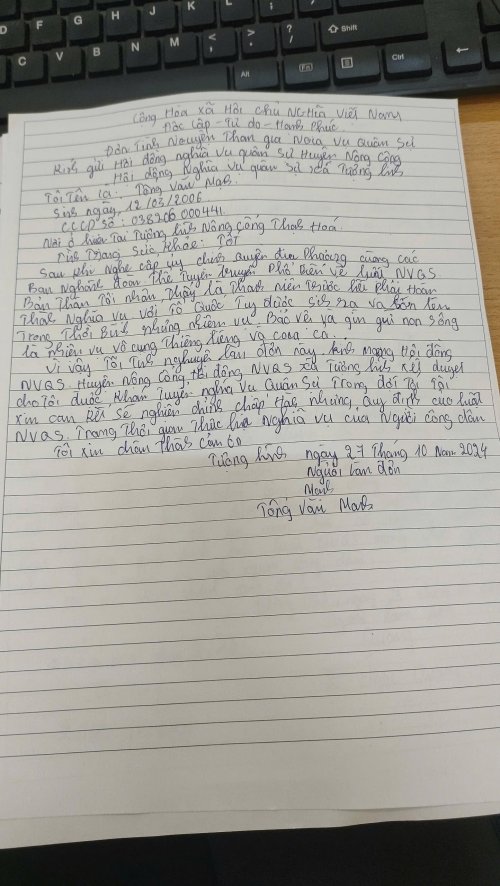 Cộng Hòa xã Hội chủ Nghĩa Việt Nam
Độc Lập - Tự do - Hạnh Phúc
Đơn Tình Nguyện Tham gia Nghĩa Vụ Quân Sự
Kính gửi Hội đồng nghĩa vụ quân sự Huyện Nông Cống
Hội đồng Nghĩa vụ quân sự xã Tượng lĩnh
Tôi Tên là: Tống Văn Mạnh
Sinh ngày, 12/03/2006
CCCD số: 038206 000441
Nơi ở hiện Tại Tượng lĩnh Nông Cống Thanh Hoá
Tình Trạng Sức Khỏe: Tốt
Sau khi Nghe cấp uỷ chính quyền địa Phương cùng các
Ban Nghành đoàn Thể Tuyên truyền Phổ biến về luật NVQS
Bản Thân Tôi nhận Thấy là Thanh niên Trước hết Phải Hoàn
Thành Nghĩa vụ với Tổ Quốc Tuy được sinh ra và lớn lên
Trong Thời Bình nhưng nhiệm vụ Bảo vệ và gìn giữ non sông
là nhiệm vụ vô cùng Thiêng liêng và cao cả.
Vì vậy Tôi Tình nghuyện làm đơn này kính mong Hội đồng
NVQS Huyện Nông Cống, Hội đồng NVQS xã Tượng lĩnh xét duyệt
cho Tôi được Khám Tuyển nghĩa Vụ Quân Sự Trong đợt Tới Tôi
xin cam kết sẽ nghiêm chỉnh chấp Hành những quy định của luật
NVQS Trong Thời gian Thực hiện Nghĩa vụ của Người công dân
Tôi xin chân Thành cảm ơn
Tượng lĩnh ngày 27 Tháng 10 Năm 2024
Người làm đơn
Mạnh
Tống Văn Mạnh
Alt
Fn
Ctrl
Shift
X
C
V
B
N
M